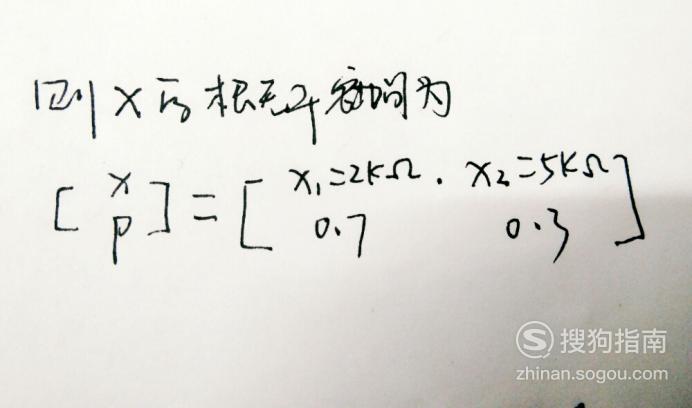 则X的概率空间为
[x p] = [x₁=2kΩ, x₂=5kΩ
0.7 0.3]
搜狗指南
zhinan.sogou.com